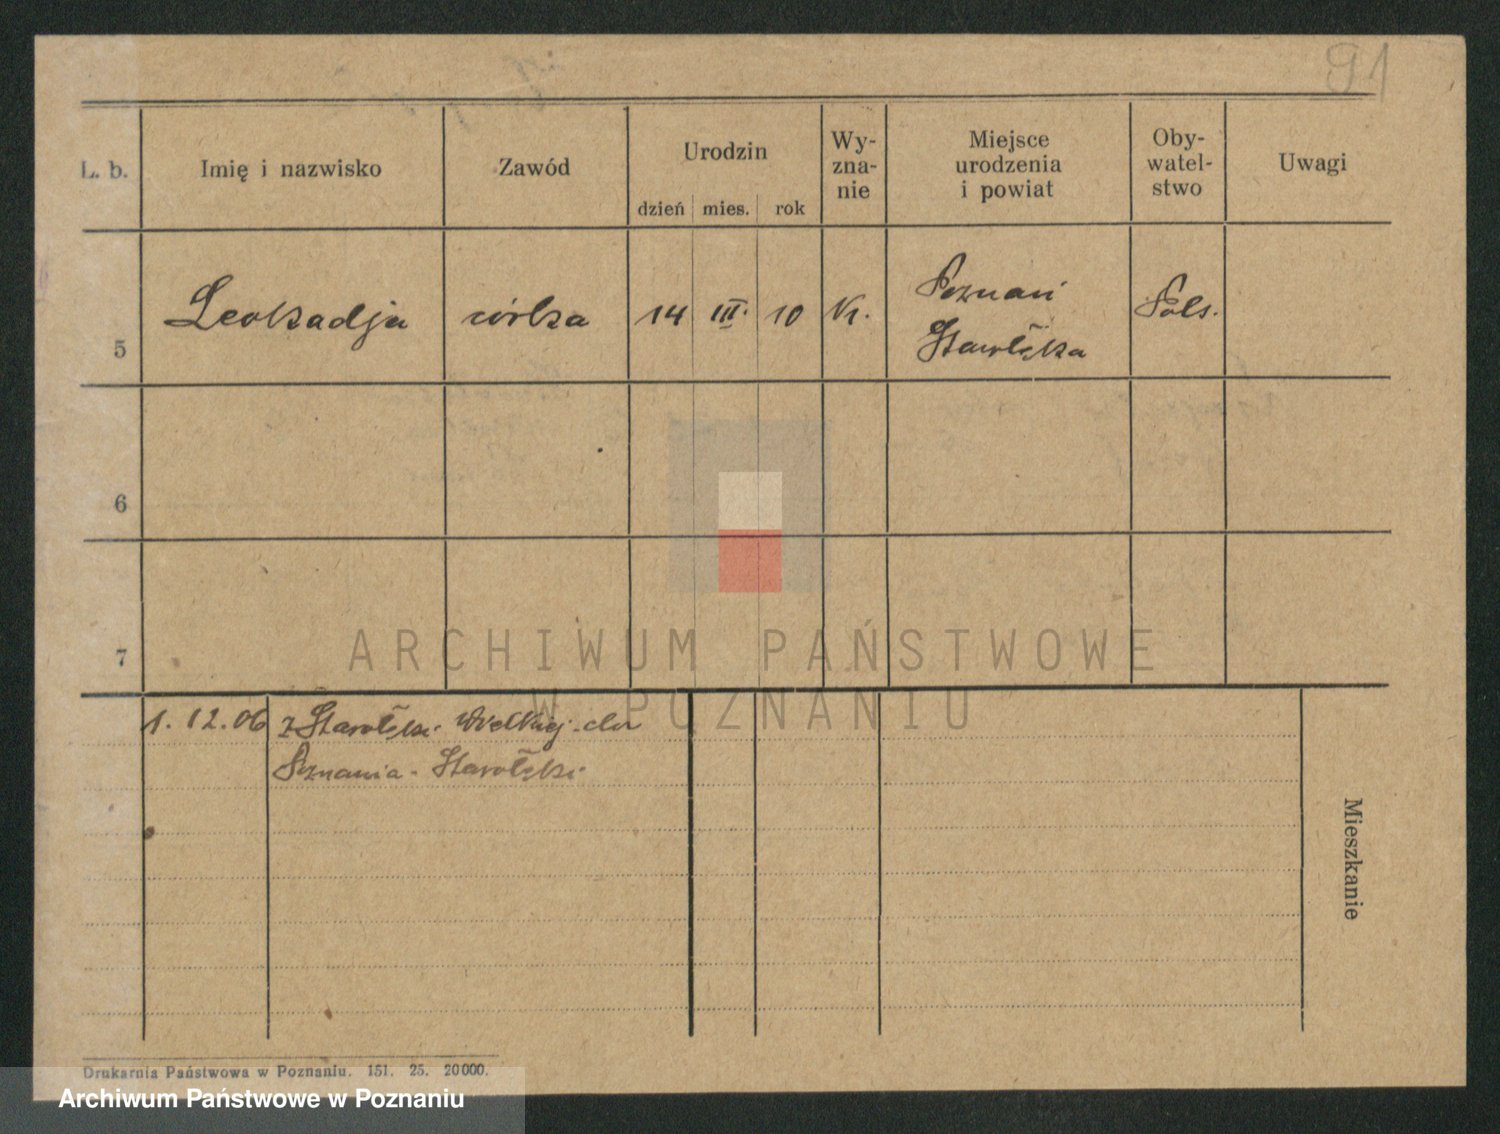 91
L. b.
Imię i nazwisko
Zawód
Urodzin
dzień mies. rok
Wy-
zna-
nie
Miejsce
urodzenia
i powiat
Oby-
watel-
stwo
Uwagi
5 Leokadja córka 14 III. 10 Kt. Poznań Pols.
Starołęka
6
7
1. 12. 06 z Starołęki Wielkiej do
Poznania - Starołęki
Mieszkanie
Drukarnia Państwowa w Poznaniu. 151. 25. 20000.
ARCHIWUM PAŃSTWOWE
W POZNANIU
Archiwum Państwowe w Poznaniu